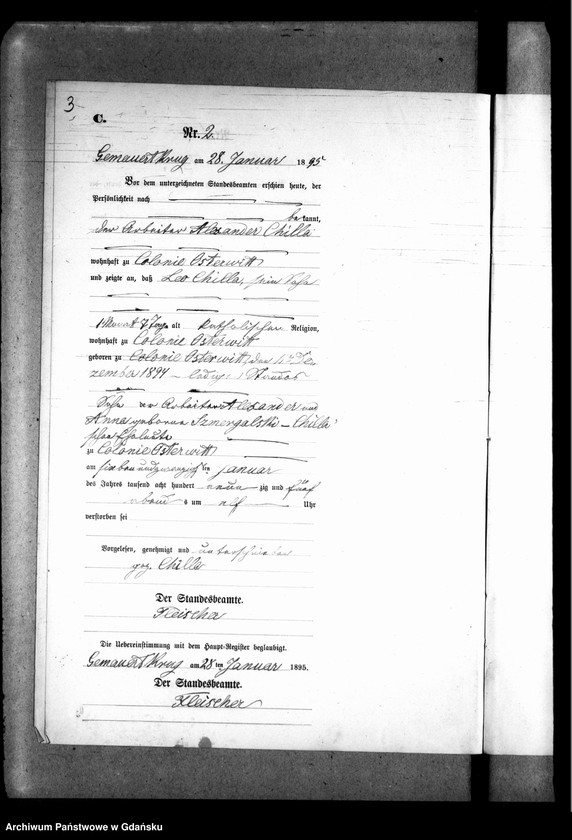 3
C.
Nr. 2.
Gemauert Krug am 28. Januar 1895
Vor dem unterzeichneten Standesbeamten erschien heute, der
Persönlichkeit nach
bekannt,
der Arbeiter Alexander Chilla
wohnhaft zu Colonie Osterwitt
und zeigte an, daß Leo Chilla, sein Sohn
1 Monat 7 Tage alt katholischer Religion,
wohnhaft zu Colonie Osterwitt
geboren zu Colonie Osterwitt, den De-
zember 1894 ledigen Standes
Sohn der Arbeiter Alexander und
Anna geborene Szmergalski - Chilla'
schen Eheleute
zu Colonie Osterwitt
am siebenundzwanzigsten Januar
des Jahres tausend acht hundert neun zig und fünf
abends um elf Uhr
verstorben sei
Vorgelesen, genehmigt und unterschrieben
gez. Chilla
Der Standesbeamte.
Fleischer
Die Uebereinstimmung mit dem Haupt-Register beglaubigt.
Gemauert Krug am 28ten Januar 1895.
Der Standesbeamte.
Fleischer
Archiwum Państwowe w Gdańsku